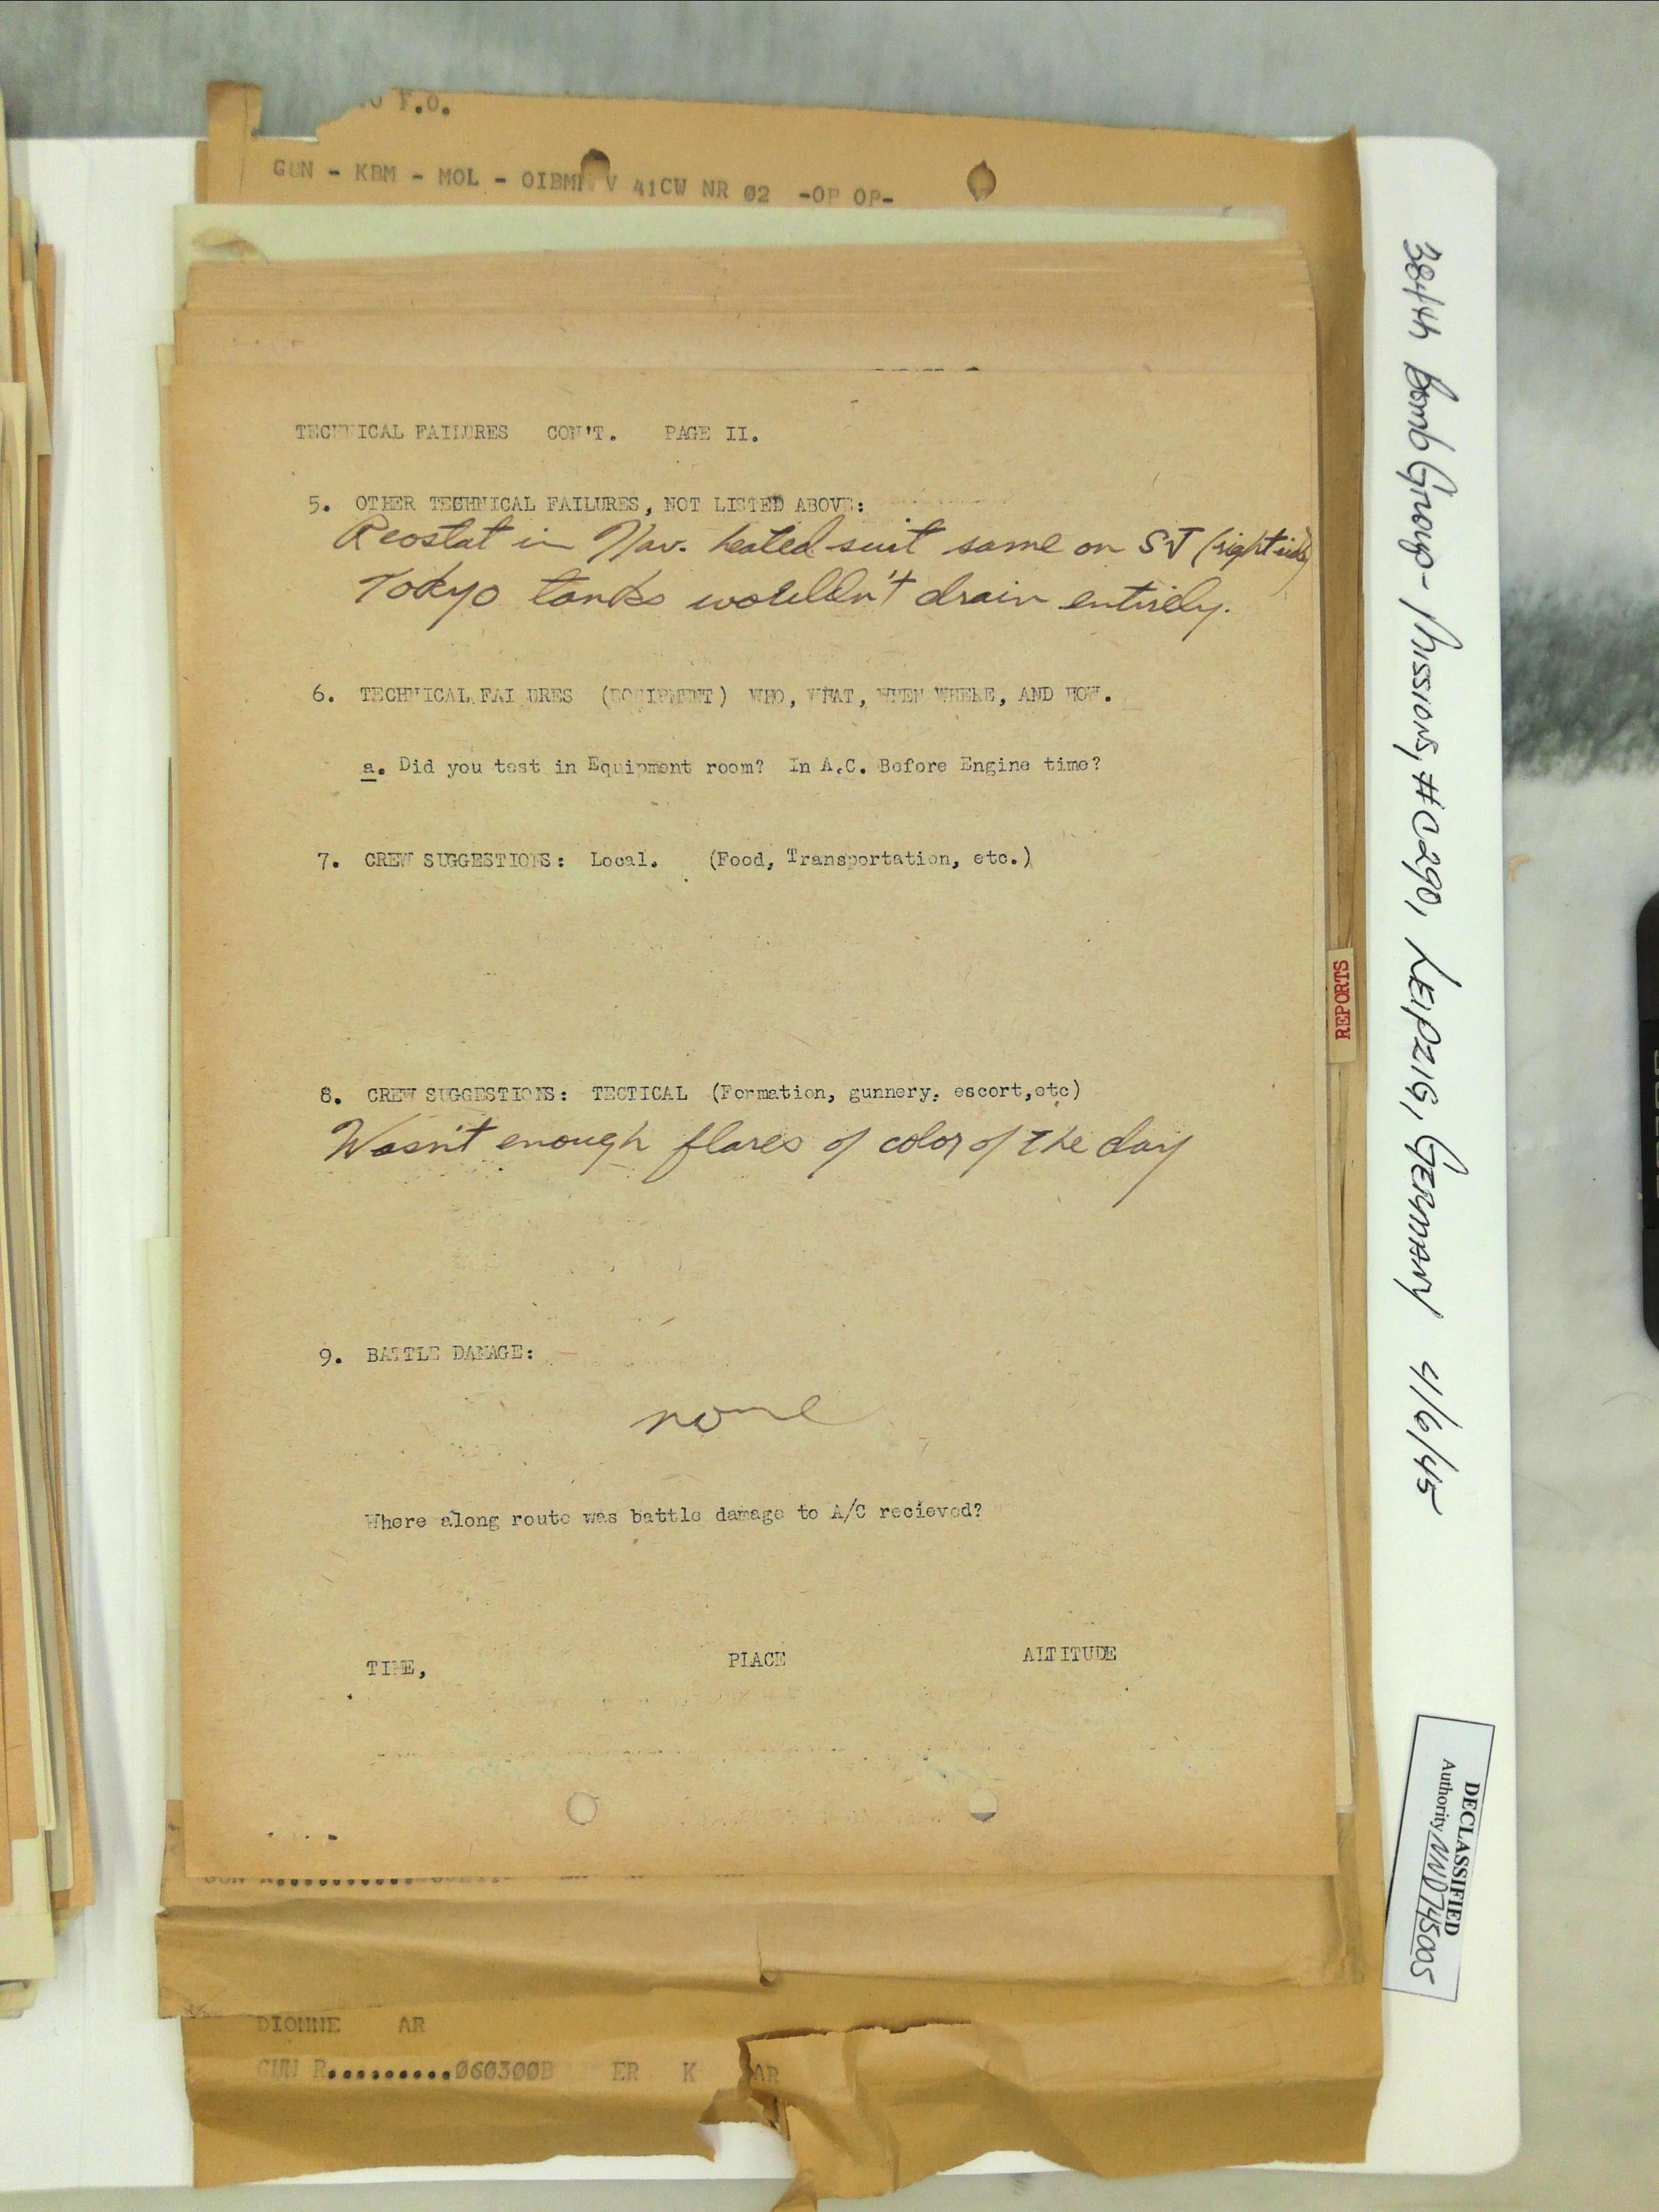 F.O.
GUN - KBM - MOL - OIBMN V 41CW NR 02 -OP OP-
TECHNICAL FAILURES CON'T. PAGE II.
5. OTHER TECHNICAL FAILURES, NOT LISTED ABOVE:
Reostat in Nav. heated suit same on SJ (right side)
Tokyo tanks wouldn't drain entirely.
6. TECHNICAL FAILURES (EQUIPMENT) WHO, WHAT, WHEN WHERE, AND HOW.
a. Did you test in Equipment room? In A.C. Before Engine time?
7. CREW SUGGESTIONS: Local. (Food, Transportation, etc.)
8. CREW SUGGESTIONS: TECTICAL (Formation, gunnery, escort,etc)
Wasn't enough flares of color of the day
9. BATTLE DAMAGE:
none
Where along route was battle damage to A/C recieved?
TIME, PLACE ALTITUDE
DIONNE AR
GUN R..........060300B ER K AR
REPORTS
384th Bomb Group - Mission, #C290, LEIPZIG, GERMANY 4/6/45
DECLASSIFIED
Authority NND745005